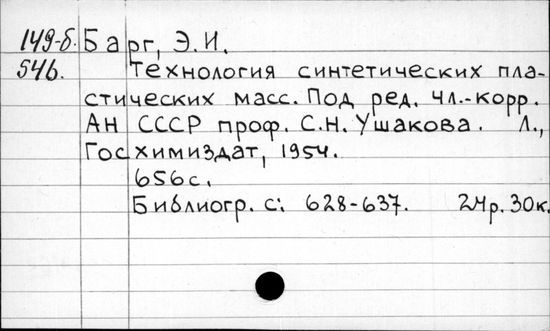 149-б. Барг, Э.И.
546. Технология синтетических пла-
стических масс. Под ред. чл.-корр.
АН СССР проф. С.Н. Ушакова. Л.,
Госхимиздат, 1954.
656с.
Библиогр. с: 628-637. 24р. 30к.